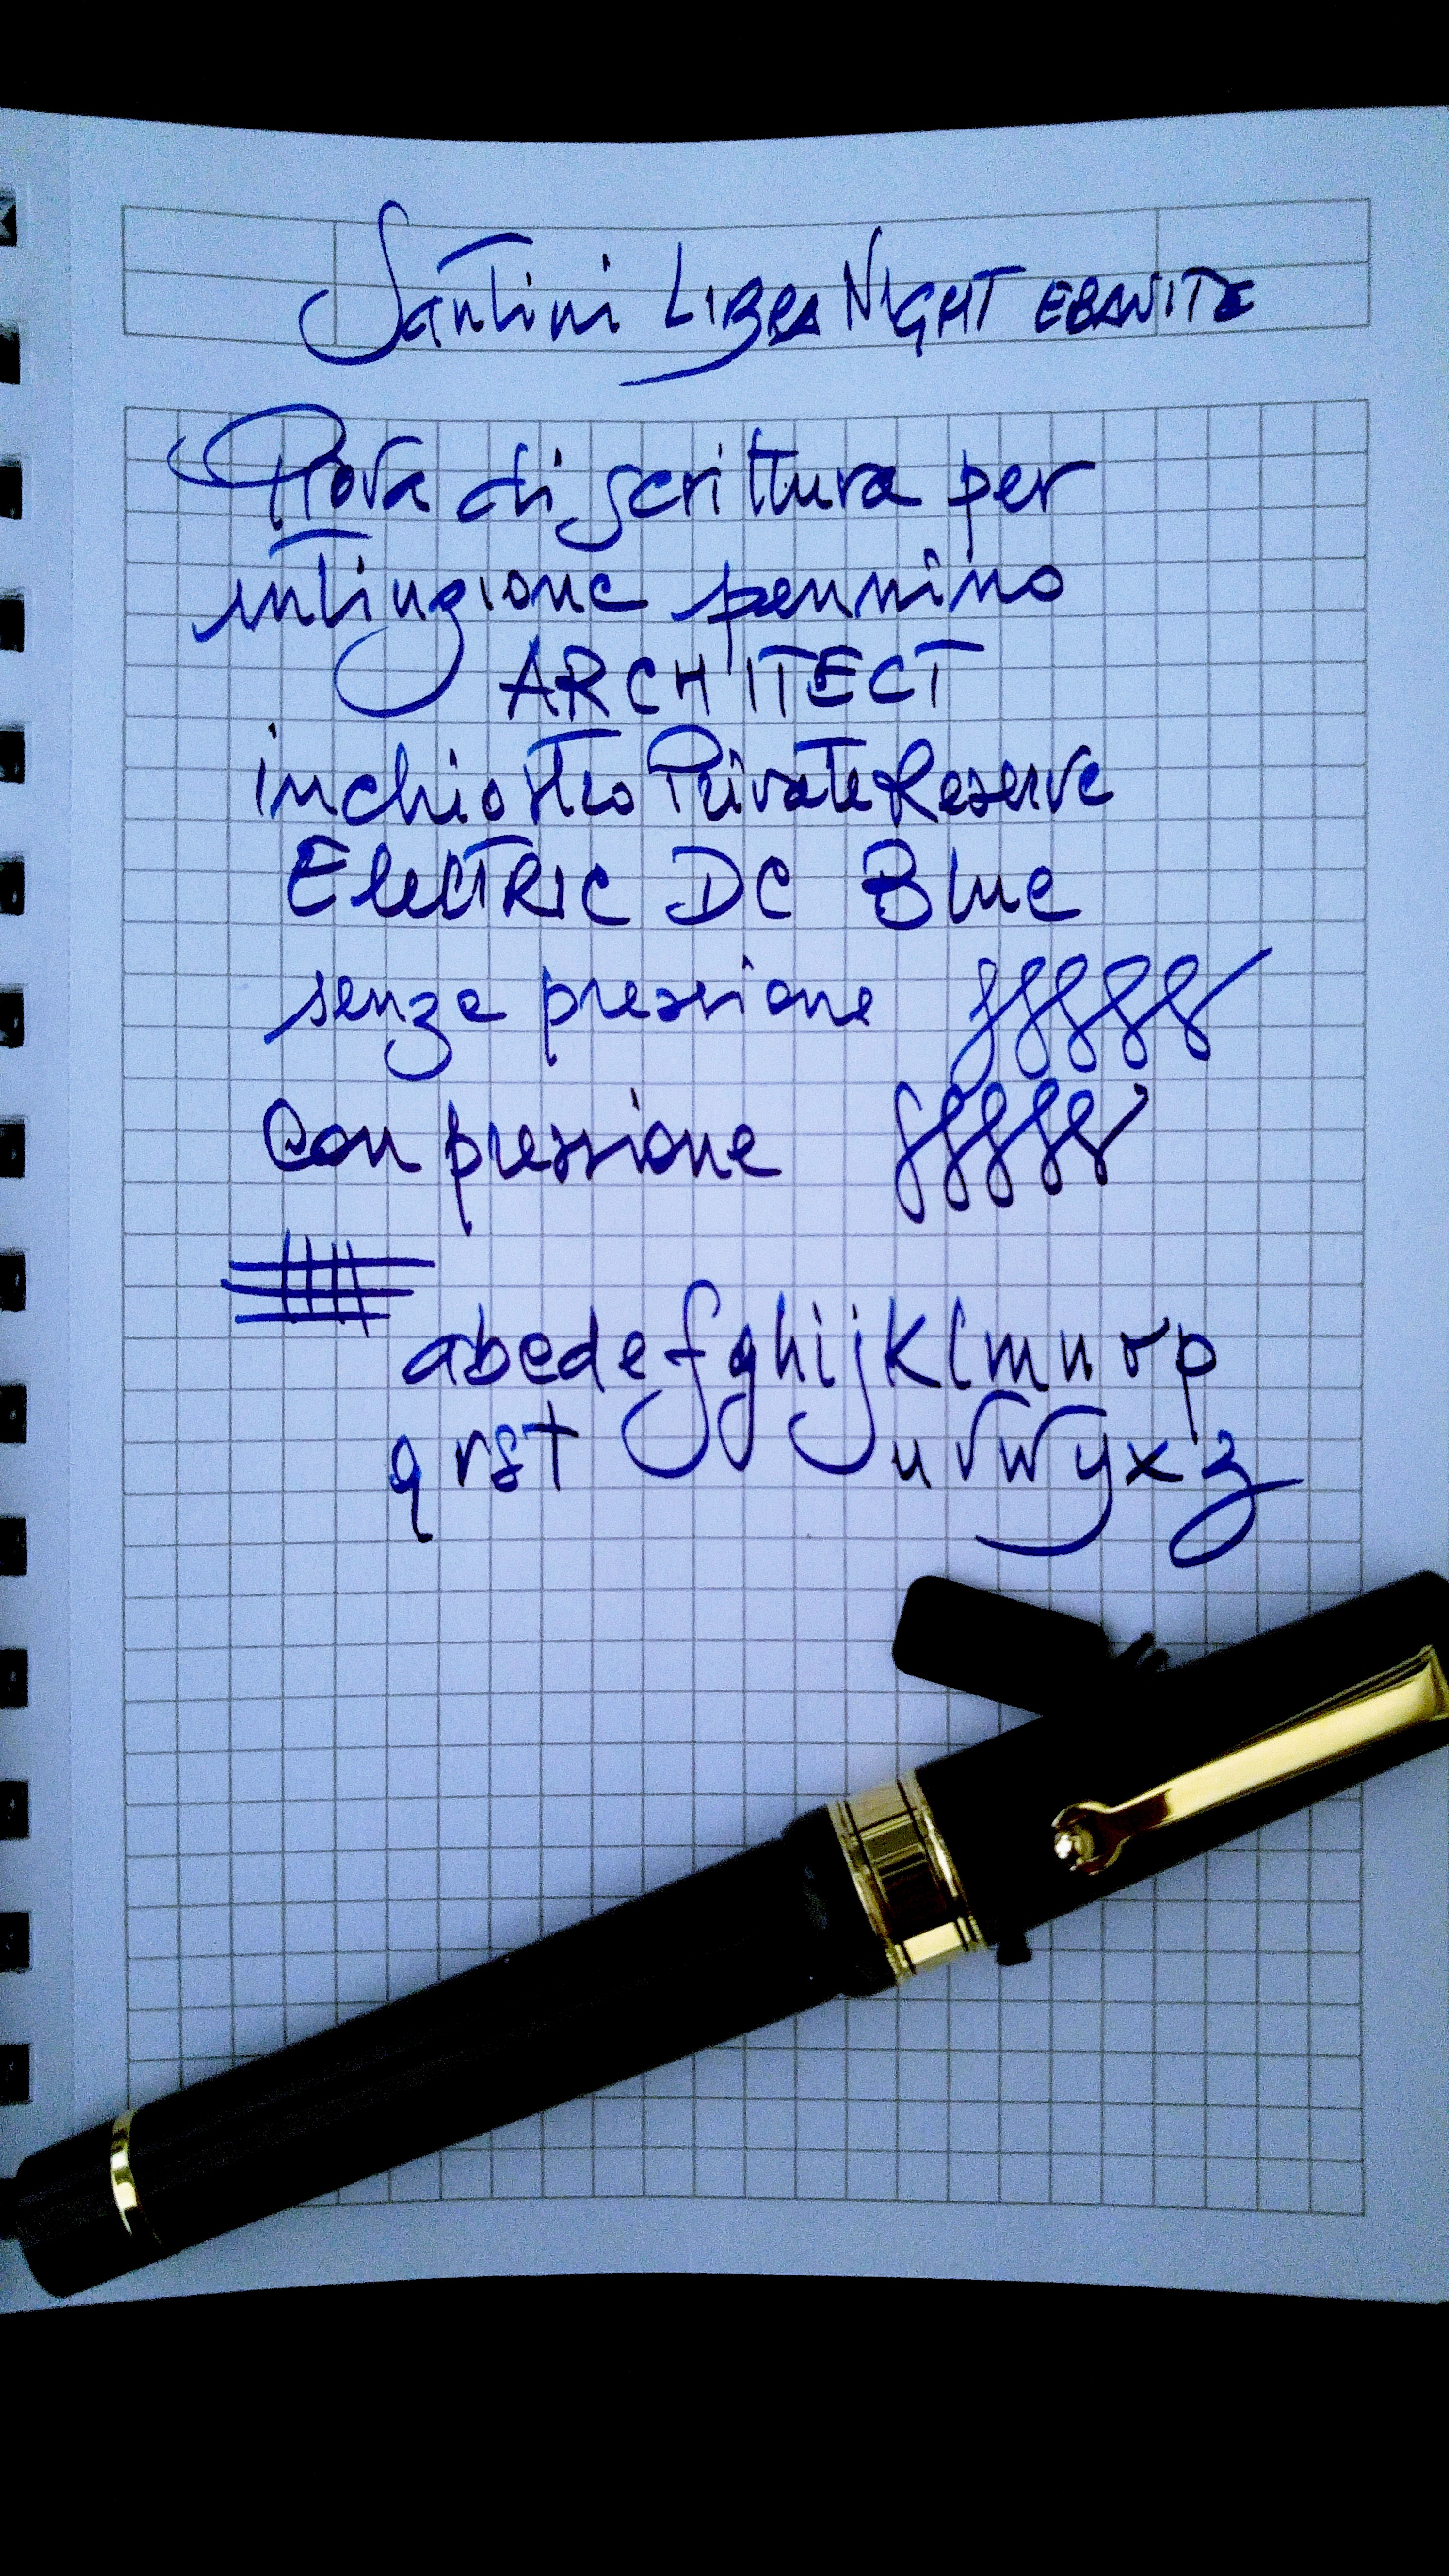 Santini LIBRA NIGHT EBANITE
Prova di scrittura per
intinzione pennino
ARCHITECT
inchiostro Private Reserve
ElecTRIC DC Blue
senza pressione
Con pressione
abcdefghijklmnop
qrst uvwyxz